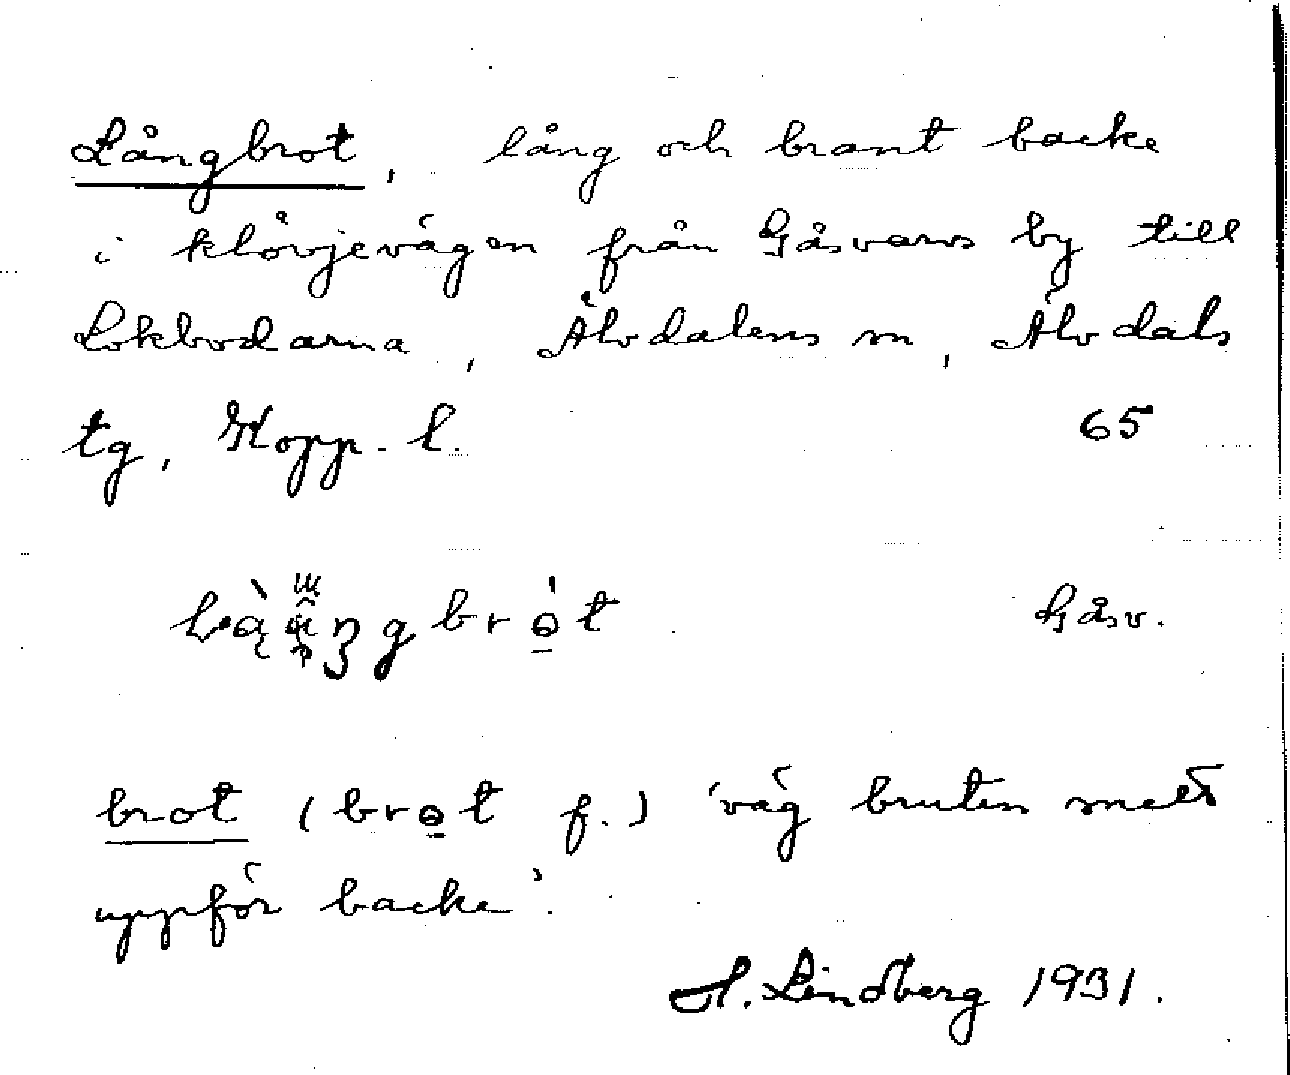 Långbrot, lång och brant backe
i klövjevägen från Gåsvarvs by till
Lokbodarna, Älvdalens sn, Älvdals
tg, Kopp. l. 65
Gåsv.
brot (brɵt f.) 'väg bruten snett
uppför backe'.
A. Lindberg 1931.